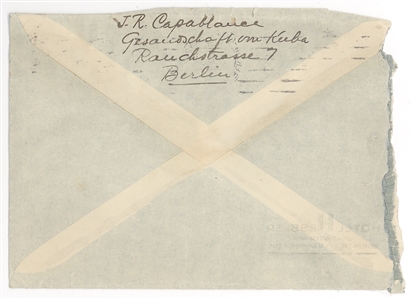 J. R. Capablanca
Gesandschaft von Kuba
Rauchstrasse 7
Berlin